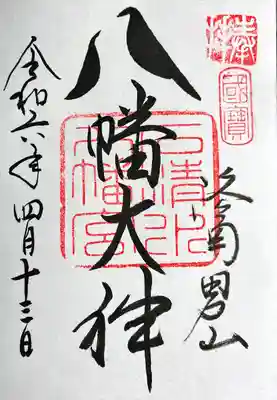 奉拝
國寶
洛南男山
八幡大神
石清水八幡宮
令和六年 四月十三日